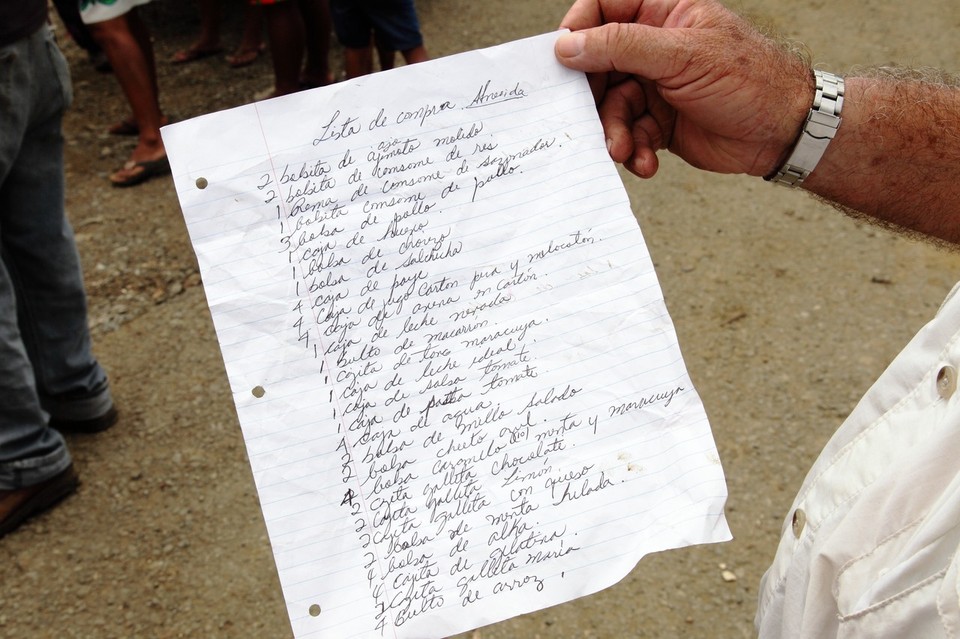 Lista de compra. Almeida
2 bolsita de ajo
2 bolsita de ajinoto molido
1 Rema de consome de res
1 bolsita consome de sazonador.
3 bolsa de pollo de pollo.
1 caja de huevo.
1 bolsa de chorizo
1 bolsa de salchicha
4 caja de
4 caja de jugo carton pera y melocotón.
4 caja de avena en cartón.
1 caja de leche nevada
1 bulto de macarrón.
1 cajita de tang maracuya.
1 caja de leche ideal
1 caja de salsa tomate.
1 caja de pasta tomate.
4 caja de agua.
2 bolsa de millo salado
2 bolsa chieto azul.
4 bolsa caramelo menta y maracuya
2 cajita galleta chocolate.
2 cajita galleta Limón.
2 cajita galleta con queso
2 bolsa de menta helada.
4 cajita de alka.
4 cajita de gelatina.
3 cajita galleta maría
4 Bulto de arroz,